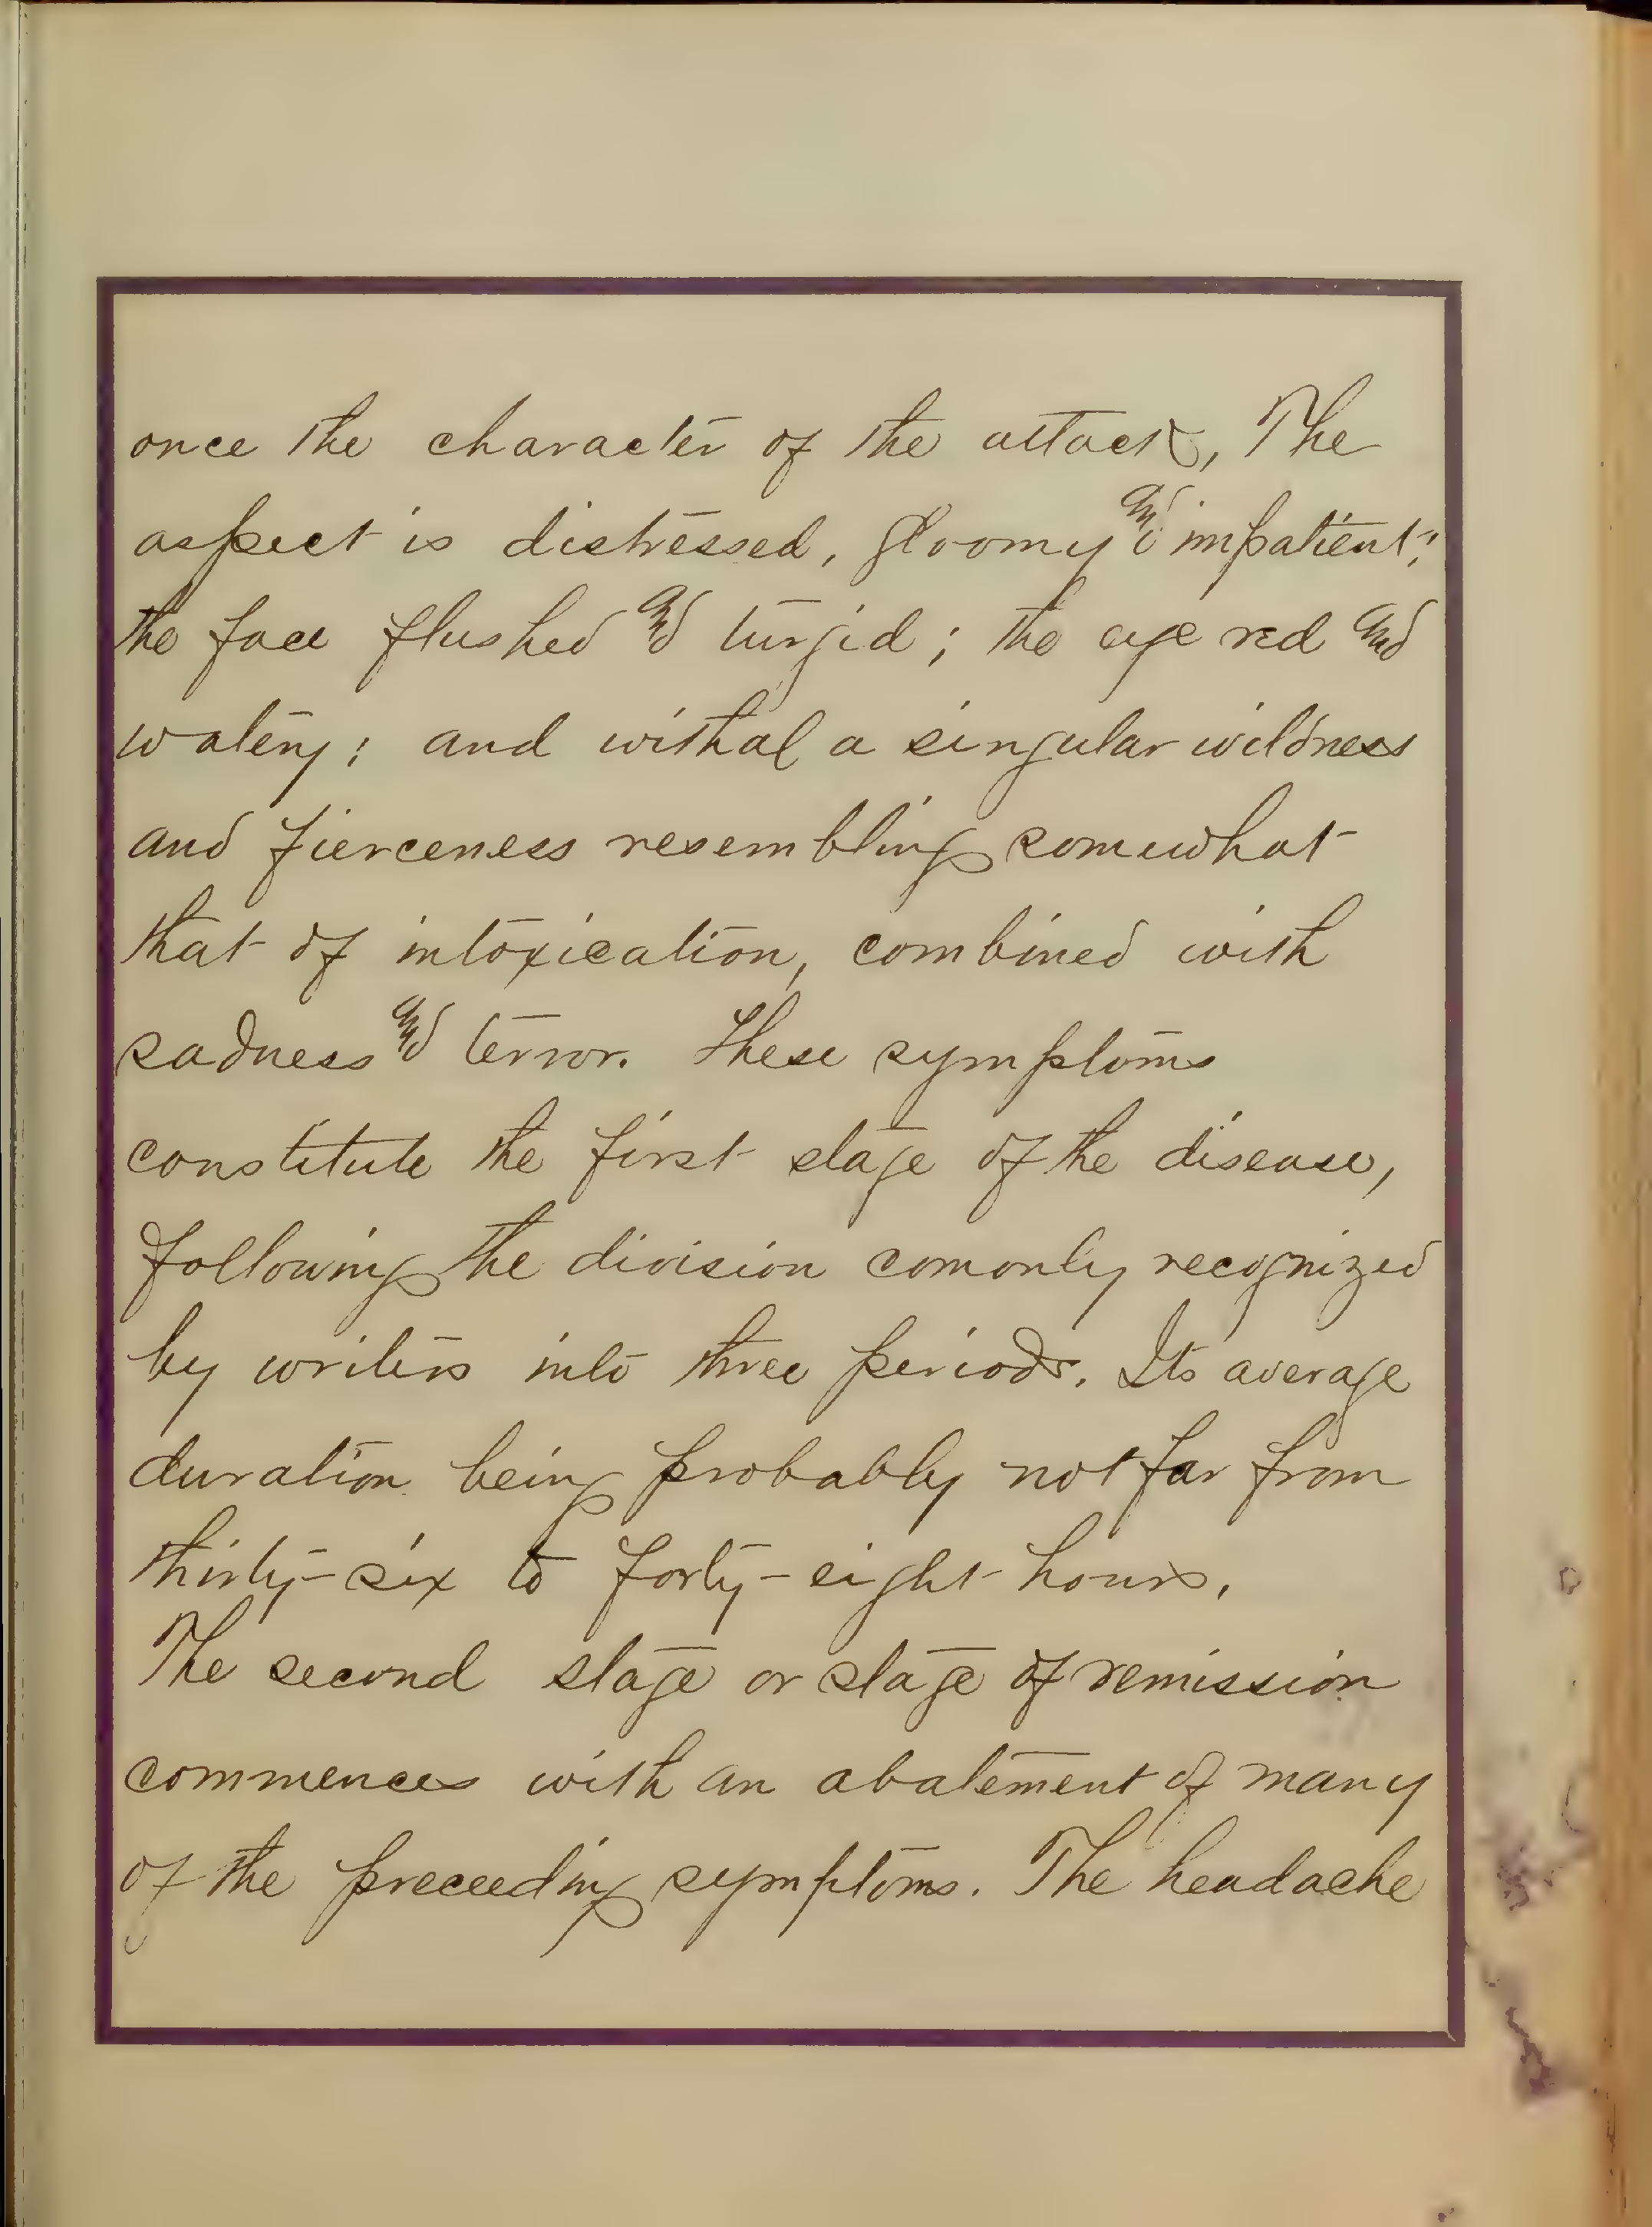 once the character of the attack, The
aspect is distressed, gloomy and impatient;
the face flushed and turgid; the eye red and
watery; and withal a singular wildness
and fierceness resembling somewhat
that of intoxication, combined with
sadness and terror. These symptoms
constitute the first stage of the disease,
following the division comonly recognized
by writers into three periods. Its average
duration being probably not far from
thirty-six to forty-eight hours.
The second stage or stage of remission
commences with an abatement of many
of the preceeding symptoms. The headache